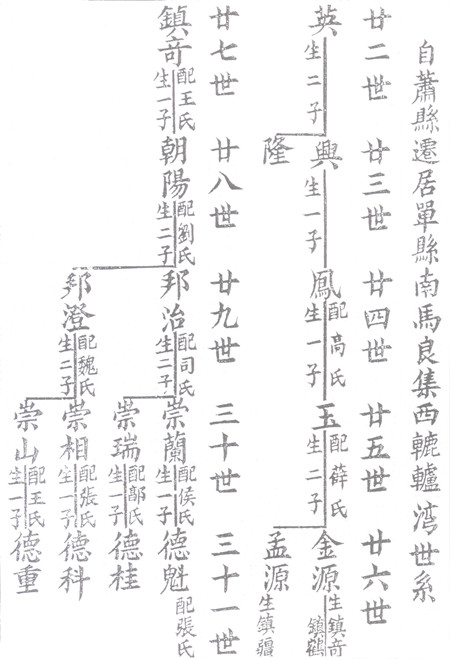 自蕭縣遷居單縣南馬良集西轆轤湾世系
廿二世
廿三世
廿四世
廿五世
廿六世
英
生二子
興
生一子
鳳
配高氏
生一子
玉
配薛氏
生二子
金源
生鎮奇
鎮鶴
隆
孟源
生鎮疆
廿七世
廿八世
廿九世
三十世
三十一世
鎮奇
配王氏
生一子
朝陽
配劉氏
生二子
邦治
配司氏
生二子
崇蘭
配侯氏
生一子
德魁
配張氏
崇瑞
配鄗氏
生一子
德桂
邦澄
配魏氏
生二子
崇相
配張氏
生一子
德科
崇山
配王氏
生一子
德重